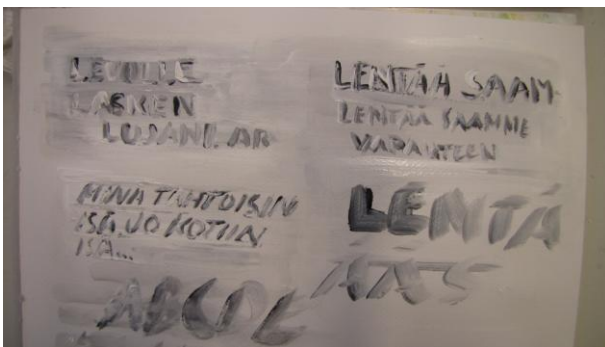 LEVOLLE
LASKEN
LUOJANI, AR
MINÄ TAHTOISIN
ISÄ, JO KOTIIN
ISÄ...
LENTÄÄ SAAM
LENTÄÄ SAAMME
VAPAUTEEN
LENTÄ
ÄÄS